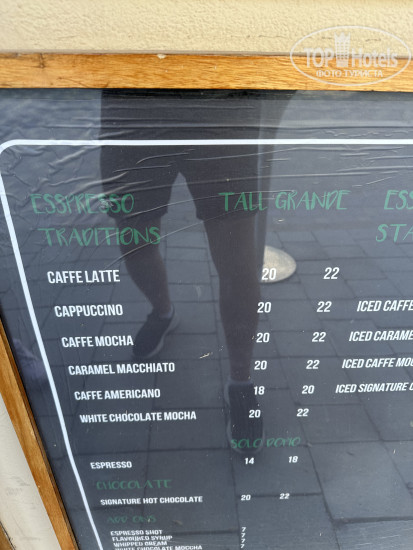 TOPHotels
ФОТО ТУРИСТА
ESSPRESSO TALL GRANDE ES
TRADITIONS STA
CAFFE LATTE 20 22
CAPPUCCINO 20 22 ICED CAFFE
CAFFE MOCHA 20 20 ICED CARAME
CARAMEL MACCHIATO 20 22 ICED CAFFE MOC
CAFFE AMERICANO 18 20 ICED SIGNATURE
WHITE CHOCOLATE MOCHA 20 22
SOLO DOPIO
ESPRESSO 14 18
CHOCOLATE
SIGNATURE HOT CHOCOLATE 20 22
ESPRESSO SHOT 7
FLAVOURED SYRUP 7
WHIPPED CREAM 7
WHITE CHOCOLATE MOCCHA 7